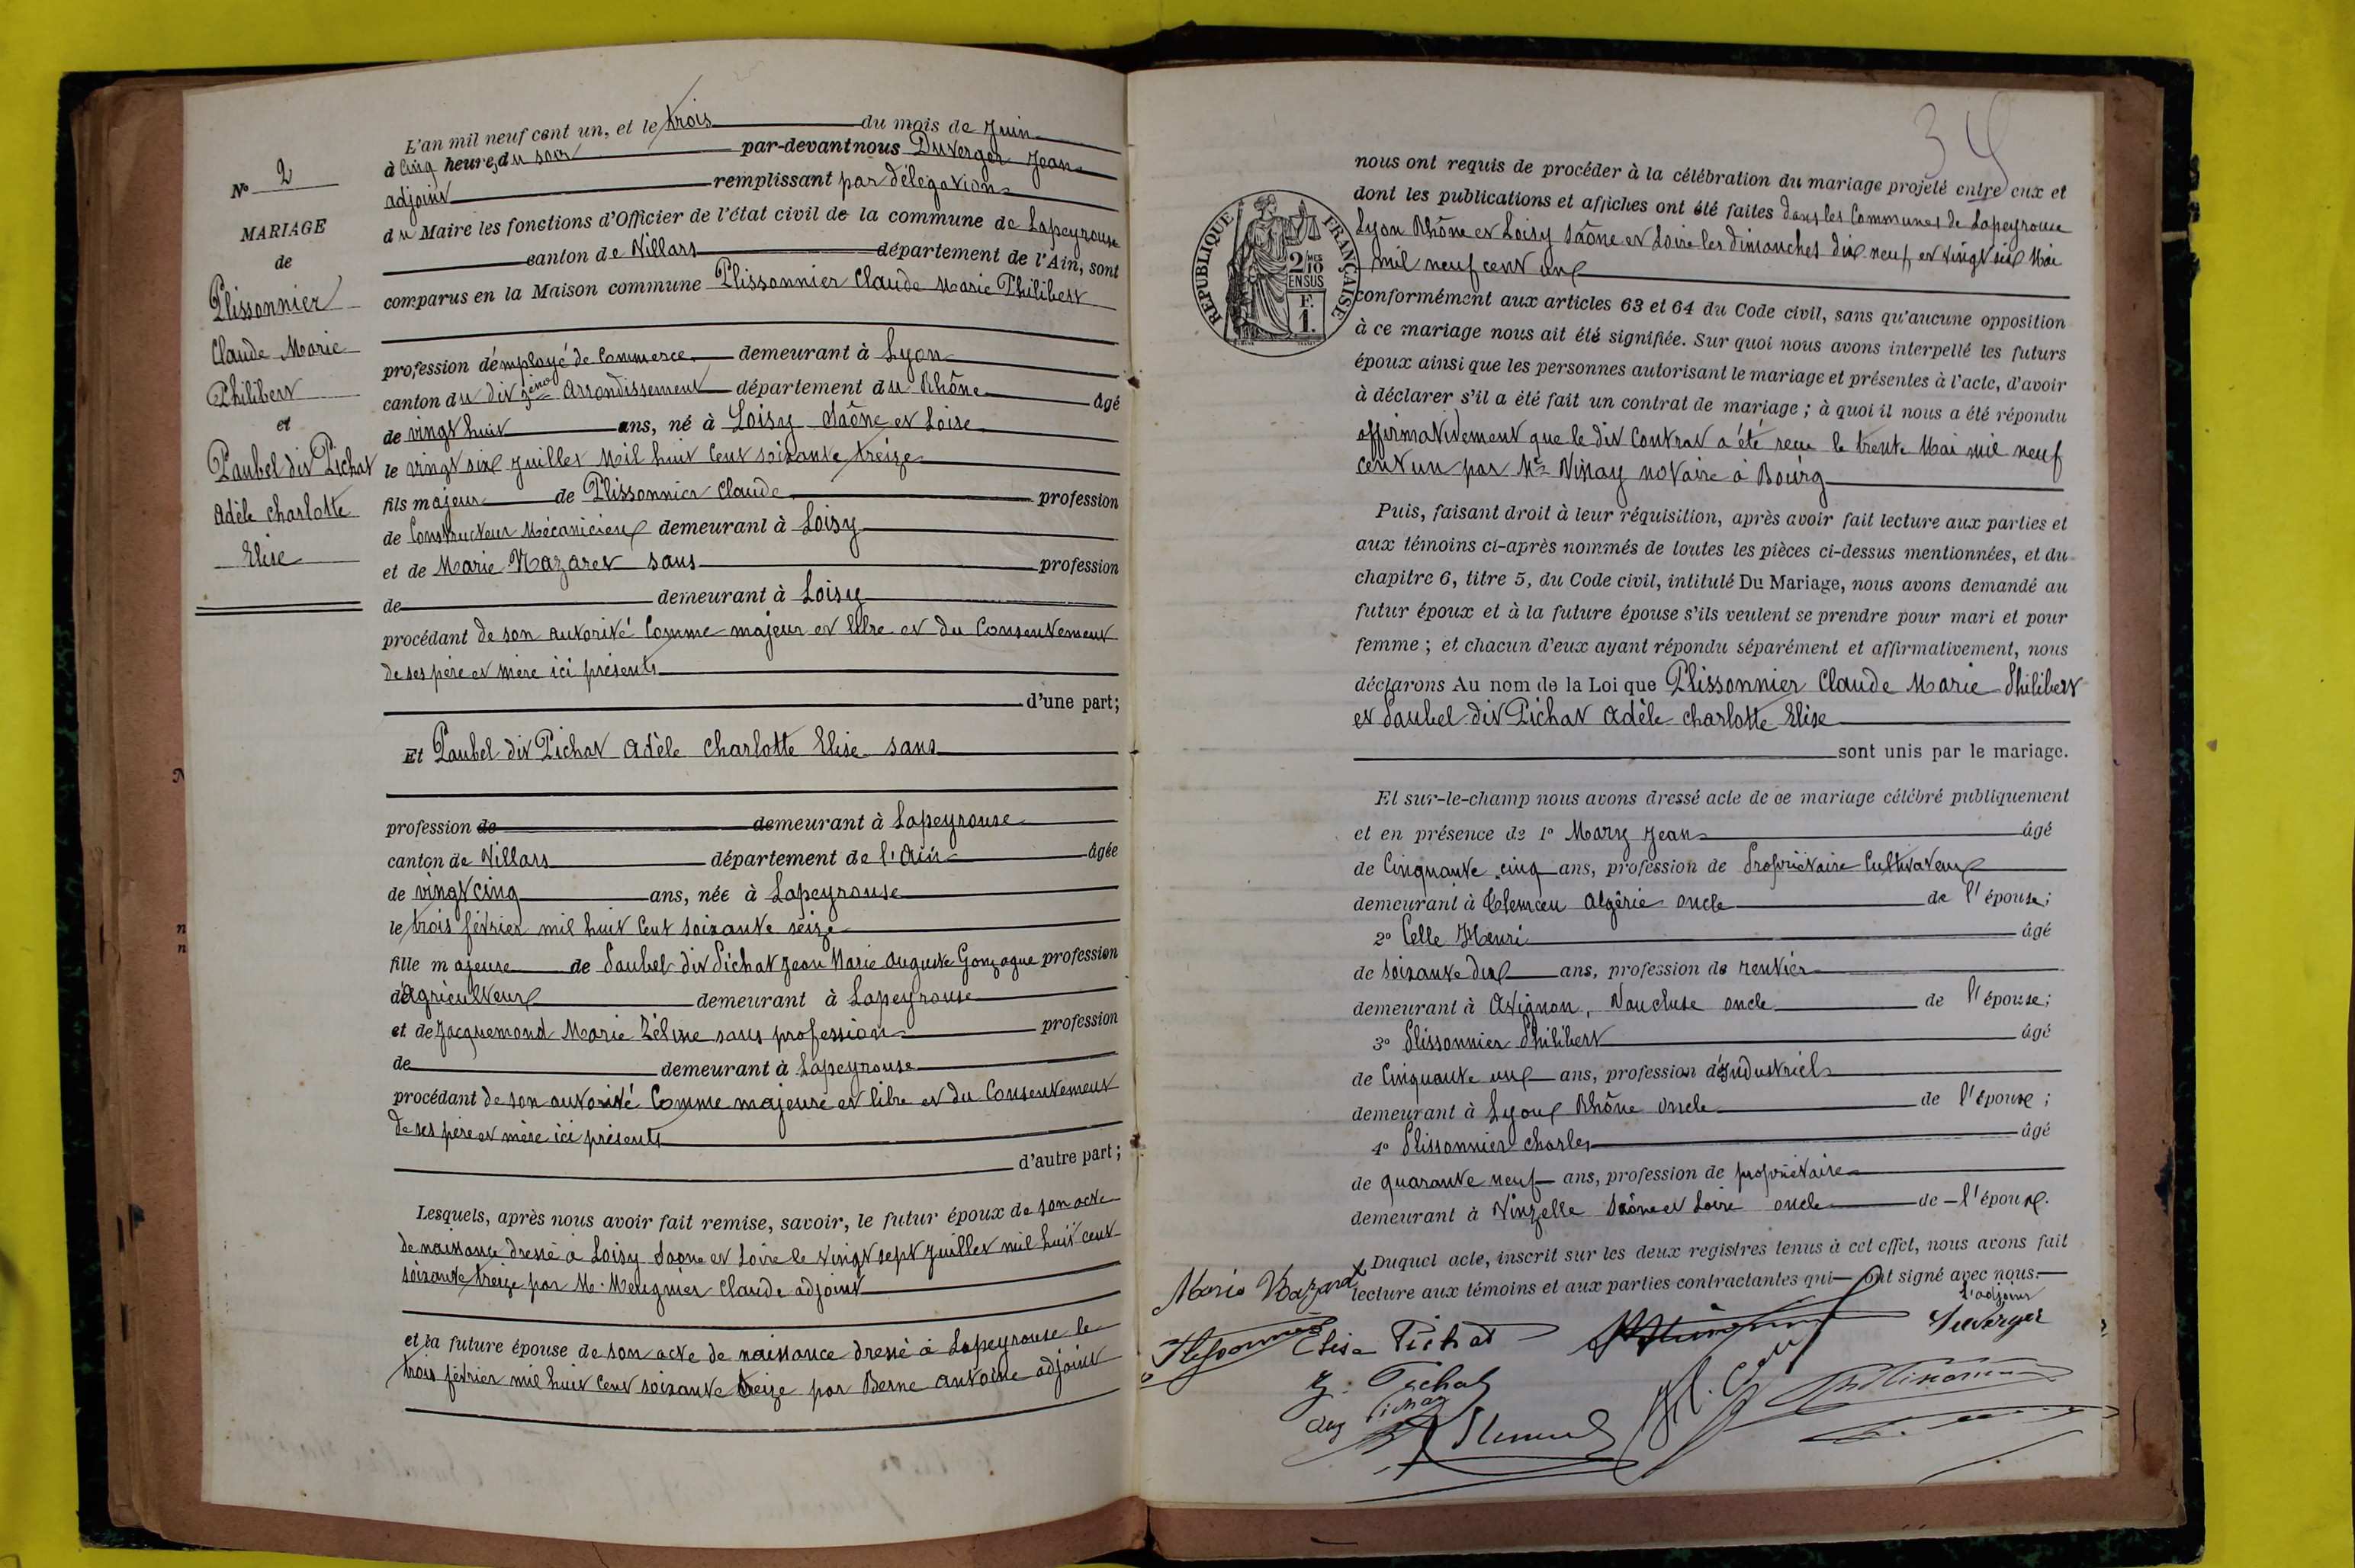 L'an mil neuf cent un, et le trois du mois de Juin
à cinq heures du soir par-devant nous Duverger Jean
adjoint remplissant par délégation
du Maire les fonctions d'Officier de l'état civil de la commune de Lapeyrouse
canton de Villars département de l'Ain, sont
comparus en la Maison commune Plissonnier Claude Marie Philibert
profession d'employé de Commerce demeurant à Lyon
canton du dit 3ème arrondissement département du Rhône âgé
de vingt huit ans, né à Loisy Saône et Loire
le vingt six Juillet Mil huit Cent soixante treize
fils majeur de Plissonnier Claude profession
de Constructeur Mécanicien demeurant à Loisy
et de Marie Nazaret sans profession
de demeurant à Loisy
procédant de son autorité Comme majeur et libre et du Consentement
de ses père et mère ici présents
d'une part;
Et Paubel dit Pichat Adèle Charlotte Elise sans
profession de demeurant à Lapeyrouse
canton de Villars département de l'Ain âgée
de vingt cinq ans, née à Lapeyrouse
le trois février mil huit Cent soixante seize
fille majeure de Paubel dit Pichat Jean Marie Auguste Gonzague profession
d'Agriculteur demeurant à Lapeyrouse
et de Jacquemond Marie Zéline sans profession profession
de demeurant à Lapeyrouse
procédant de son autorité Comme majeure et libre et du Consentement
de ses père et mère ici présents
d'autre part;
Lesquels, après nous avoir fait remise, savoir, le futur époux de son acte
de naissance dressé à Loisy Saône et Loire le vingt sept Juillet mil huit cent
soixante treize par Mr Meugnier Claude adjoint
et la future épouse de son acte de naissance dressé à Lapeyrouse le
trois février mil huit Cent soixante treize par Berne Antoine adjoint
No 2
MARIAGE
de
Plissonnier
Claude Marie
Philibert
et
Paubel dit Pichat
Adèle Charlotte
Elise
34
nous ont requis de procéder à la célébration du mariage projeté entre eux et
dont les publications et affiches ont été faites dans les Communes de Lapeyrouse
Lyon Rhône et Loisy Saône et Loire les dimanches dix neuf et vingt six Mai
mil neuf cent un
conformément aux articles 63 et 64 du Code civil, sans qu'aucune opposition
à ce mariage nous ait été signifiée. Sur quoi nous avons interpellé les futurs
époux ainsi que les personnes autorisant le mariage et présentes à l'acte, d'avoir
à déclarer s'il a été fait un contrat de mariage; à quoi il nous a été répondu
affirmativement que le dit Contrat a été reçu le trente Mai mil neuf
cent un par Me Vinay notaire à Bourg
Puis, faisant droit à leur réquisition, après avoir fait lecture aux parties et
aux témoins ci-après nommés de toutes les pièces ci-dessus mentionnées, et du
chapitre 6, titre 5, du Code civil, intitulé Du Mariage, nous avons demandé au
futur époux et à la future épouse s'ils veulent se prendre pour mari et pour
femme; et chacun d'eux ayant répondu séparément et affirmativement, nous
déclarons Au nom de la Loi que Plissonnier Claude Marie Philibert
et Paubel dit Pichat Adèle Charlotte Elise
sont unis par le mariage.
Et sur-le-champ nous avons dressé acte de ce mariage célébré publiquement
et en présence de 1o Mary Jean âgé
de Cinquante cinq ans, profession de Propriétaire Cultivateur
demeurant à Tlemcen Algérie oncle de l'épouse;
2o Celle Henri âgé
de soixante dix ans, profession de rentier
demeurant à Avignon, Vaucluse oncle de l'épouse;
3o Plissonnier Philibert âgé
de Cinquante un ans, profession d'Industriel
demeurant à Lyon Rhône oncle de l'épouse;
4o Plissonnier Charles âgé
de quarante neuf ans, profession de propriétaire
demeurant à Vinzelle Saône et Loire oncle de l'époux.
Duquel acte, inscrit sur les deux registres tenus à cet effet, nous avons fait
lecture aux témoins et aux parties contractantes qui ont signé avec nous.
RÉPUBLIQUE FRANÇAISE
2/10 MES
EN SUS
F.
1.
Marie Nazaret
Elisa Pichat
l'adjoint
Duverger
Z. Pichat
Aug Pichat